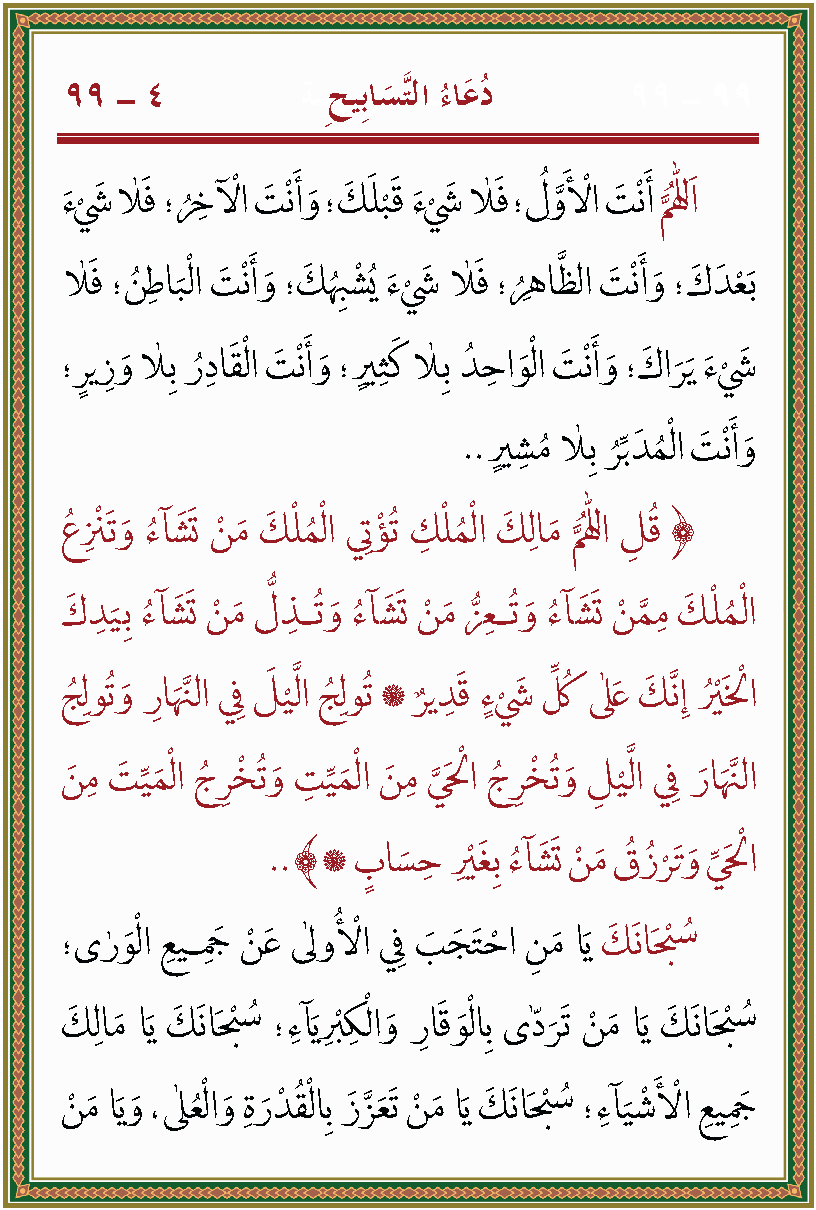 دُعَاءُ التَّسَابِيحِ ٤ – ٩٩
اَللّٰهُمَّ أَنْتَ الْأَوَّلُ؛ فَلَا شَيْءَ قَبْلَكَ؛ وَأَنْتَ الْآخِرُ؛ فَلَا شَيْءَ
بَعْدَكَ؛ وَأَنْتَ الظَّاهِرُ؛ فَلَا شَيْءَ يُشْبِهُكَ؛ وَأَنْتَ الْبَاطِنُ؛ فَلَا
شَيْءَ يَرَاكَ؛ وَأَنْتَ الْوَاحِدُ بِلَا كَثِيرٍ؛ وَأَنْتَ الْقَادِرُ بِلَا وَزِيرٍ؛
وَأَنْتَ الْمُدَبِّرُ بِلَا مُشِيرٍ..
﴿ قُلِ اللّٰهُمَّ مَالِكَ الْمُلْكِ تُؤْتِي الْمُلْكَ مَنْ تَشَآءُ وَتَنْزِعُ
الْمُلْكَ مِمَّنْ تَشَآءُ وَتُعِزُّ مَنْ تَشَآءُ وَتُذِلُّ مَنْ تَشَآءُ بِيَدِكَ
الْخَيْرُ إِنَّكَ عَلٰى كُلِّ شَيْءٍ قَدِيرٌ * تُولِجُ الَّيْلَ فِي النَّهَارِ وَتُولِجُ
النَّهَارَ فِي الَّيْلِ وَتُخْرِجُ الْحَيَّ مِنَ الْمَيِّتِ وَتُخْرِجُ الْمَيِّتَ مِنَ
الْحَيِّ وَتَرْزُقُ مَنْ تَشَآءُ بِغَيْرِ حِسَابٍ * ﴾..
سُبْحَانَكَ يَا مَنِ احْتَجَبَ فِي الْأُولٰى عَنْ جَمِيعِ الْوَرٰى؛
سُبْحَانَكَ يَا مَنْ تَرَدّٰى بِالْوَقَارِ وَالْكِبْرِيَآءِ؛ سُبْحَانَكَ يَا مَالِكَ
جَمِيعِ الْأَشْيَآءِ؛ سُبْحَانَكَ يَا مَنْ تَعَزَّزَ بِالْقُدْرَةِ وَالْعُلٰى، وَيَا مَنْ